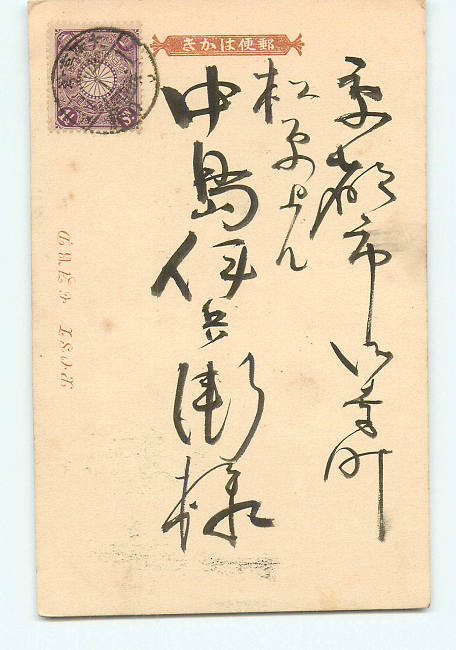 郵便はかき
京都市御幸町
松原上ル
中島伊兵衛様